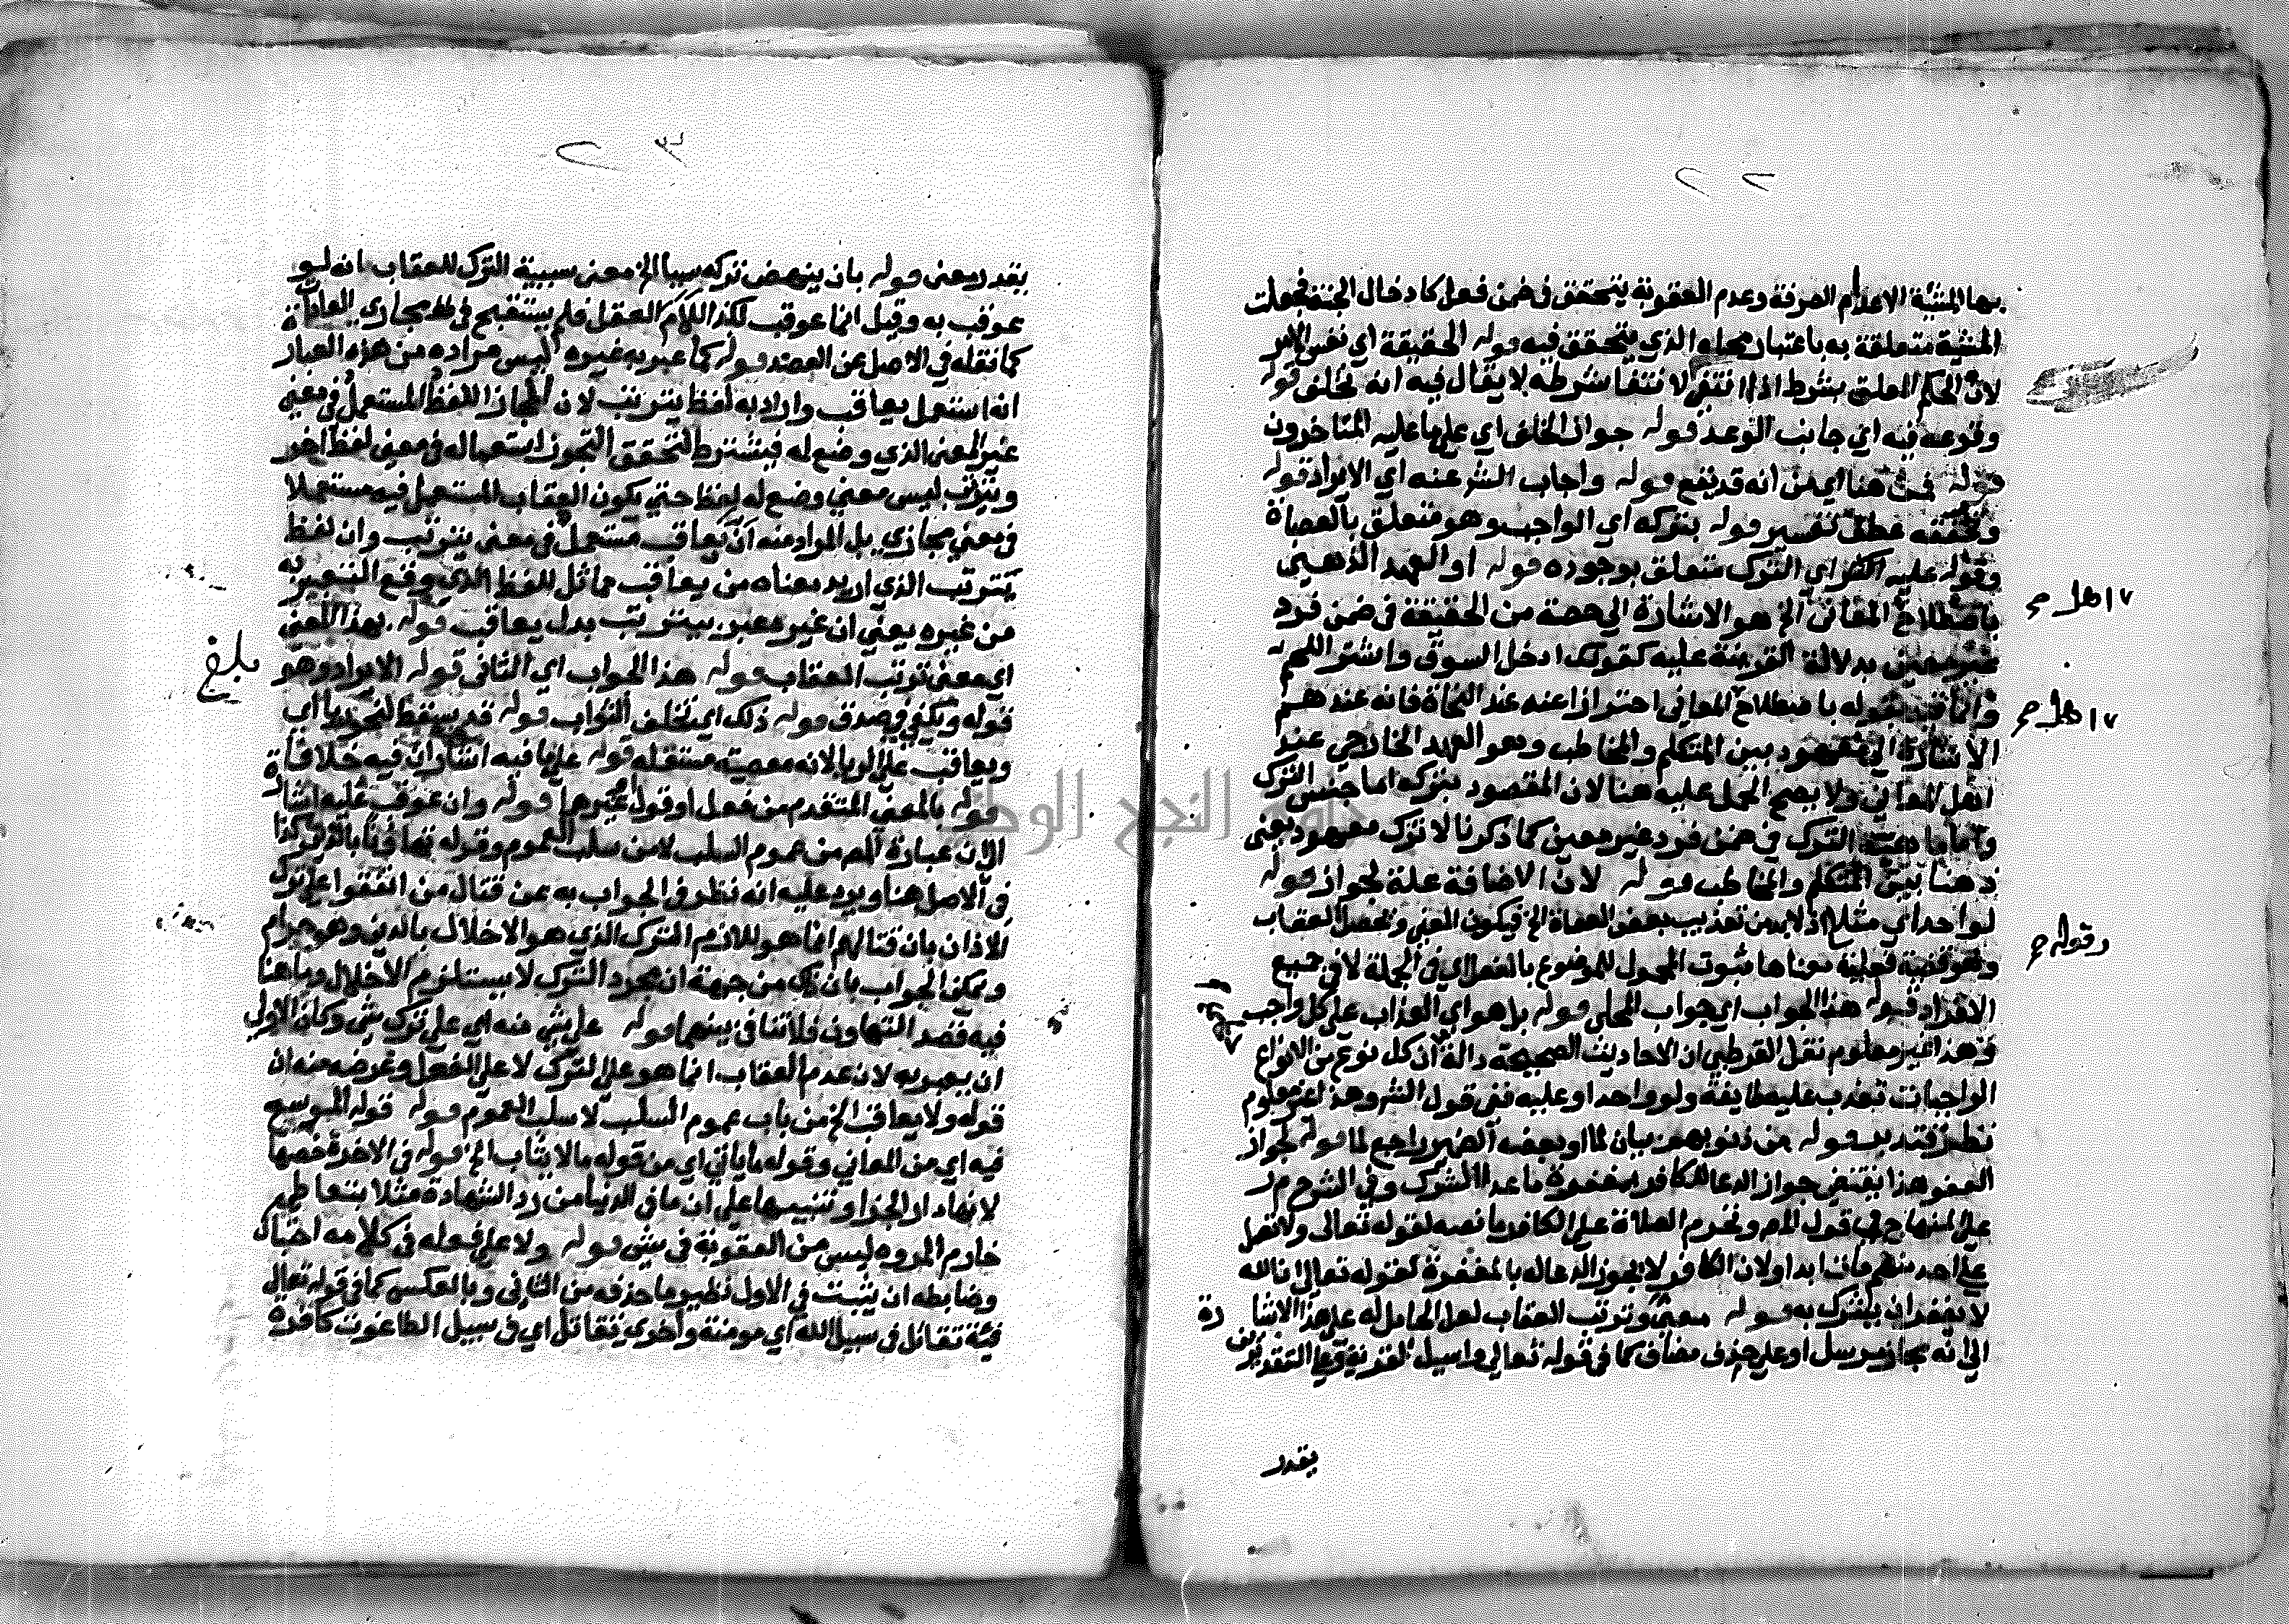 ٢٢
بها المشيئة الاعدام الصرفة وعدم العقوبة يتحقق في ضمن فعل كادخال الجنة فجعلت
المشيئة متعلقة به باعتبار محله الذي يتحقق فيه قوله الحقيقة اي نفس الامر
لان الحكم المعلق بشرط اذا انتفى لانتفا شرطه لا يقال فيه انه تخلف قوله
وقوعه فيه اي جانب الوعد قوله جواز الخلف اي على ما عليه المتاخرون
قوله هنا اي من انه قد يقع قوله واجاب الشر عنه اي الايراد قوله
وتحققه عطف تفسير قوله بتركه اي الواجب وهو متعلق بالعصاة
وقوله عليه اكثر اي الترك متعلق بوجوده قوله او العهد الذهني
باصطلاح المعاني الخ هو الاشارة الى حصة من الحقيقة في ضمن فرد
غير معين بدلالة القرينة عليه كقولك ادخل السوق واشتر اللحم
وانما قيد بقوله باصطلاح المعاني احترازا عنه عند النحاة فانه عندهم
الاشارة الى معهود بين المتكلم والمخاطب وهو العهد الخارجي عند
اهل المعاني ولا يصح الحمل عليه هنا لان المقصود بتركه اما جنس الترك
واما الترك في ضمن فرد غير معين كما ذكرنا لا ترك معهود يعني
ذهنا بين المتكلم والمخاطب قوله لان الاضافة علة لجواز قوله
لواحد اي مثلا اذ لا بد من تعذيب بعض العصاة الخ فيكون المعنى وتحصل العقاب
وهو قضية فعلية معناها ثبوت المحمول للموضوع بالفعل اي في الجملة لا في جميع
الافراد قوله هذا الجواب اي جواب المحلى قوله بل هو اي العذاب على كل واجب
وهذا غير معلوم نقل القرطبي ان الاحاديث الصحيحة دالة ان كل نوع من الانواع
الواجبات تعذب عليه طايفة ولو واحدا وعليه ففي قول الشر وهذا غير معلوم
نظر فتدبر قوله من ذنوبهم بيان لما او بعضه الضمير راجع لما قوله لجواز
العفو هذا يقتضي جواز الدعا للكافر بمغفرة ما عدا الشرك وفي الشرح م ر
على المنهاج في قول المص وتحرم الصلاة على الكافر ما نصه لقوله تعالى ولا تصل
على احد منهم مات ابدا ولان الكافر لا يجوز الدعا له بالمغفرة لقوله تعالى ان الله
لا يغفر ان يشرك به قوله معنى وترتب العقاب لعل الحامل له على هذا الاشارة
الى انه مجاز مرسل او على حذف مضاف كما في قوله تعالى واسيل القرية وعلى التقديرين
بقدر
وقوله صح
٢٣
بقدر ومعنى قوله بان ينهض تركه سببا الخ معنى سببية الترك للعقاب انه لو
عوقب به وقيل انما عوقب لكذا لاكم العقل فلم يستقبح في مجاري العادات
كما نقله في الاصل عن العضد قوله كما عبر به غيره ليس مراده من هذه العبارة
انه استعمل يعاقب واراد به لفظ يترتب لان المجاز اللفظ المستعمل في معنى
غير المعنى الذي وضع له فيشترط لتحقق التجوز استعماله في معنى لفظ اخر
ويترتب ليس معنى وضع له لفظ حتى يكون العقاب المستعمل فيه مستعملا
في معنى مجازي بل المراد منه ان يعاقب مستعمل في معنى يترتب وان لفظ
يترتب الذي اريد معناه من يعاقب مماثل للفظ الذي وقع التعبير به
من غيره يعني ان غير معبر بيترتب بدل يعاقب قوله بهذا المعنى
اي معنى ترتب العقاب قوله هذا الجواب اي الثاني قوله الايراد وهو
قوله ويكفي في صدق قوله ذلك اي تخلف الثواب قوله قد يسقط
ويعاقب على الريا لانه معصية مستقلة قوله على ما فيه اشار ان فيه خلافا
قوله بالمعنى المتقدم من فعل او قول غيرها قوله وان عوقب عليه اشارة
الان عبارة المص من عموم السلب لا من سلب العموم وقوله
في الاصل هنا ويرد عليه انه نظر في الجواب به عن قتال من اتفقوا على ترك
الاذان بان قتالهم انما هو للازم الترك الذي هو الاخلال بالدين وهو حرام
ويمكن الجواب بان ذلك من جهة ان مجرد الترك لا يستلزم الاخلال وما هنا
فيه قصد التهاون فلا تنافي بينهما قوله على شي منه اي على ترك شي وكان الاولى
ان يعبر به لان عدم العقاب انما هو على الترك لا على الفعل وغرضه منه ان
قوله ولا يعاقب الخ من باب عموم السلب لا سلب العموم قوله قوله الموسع
فيه اي من المعاني وقوله ما ياتي اي من قوله ما لا يثاب الخ قوله في الاخرة خصها
لانها دار الجزا وتنبيها على ان ما في الدنيا من رد الشهادة مثلا بتعاطي
خارم المروه ليس من العقوبة في شي قوله ولا على فعله في كلامه احتباك
وضابطه ان يثبت في الاول نظير ما حذفه من الثاني وبالعكس كما في قوله تعالى
فئة تقاتل في سبيل الله اي مومنة واخرى تقاتل اي في سبيل الطاغوت كافرة
بلغ